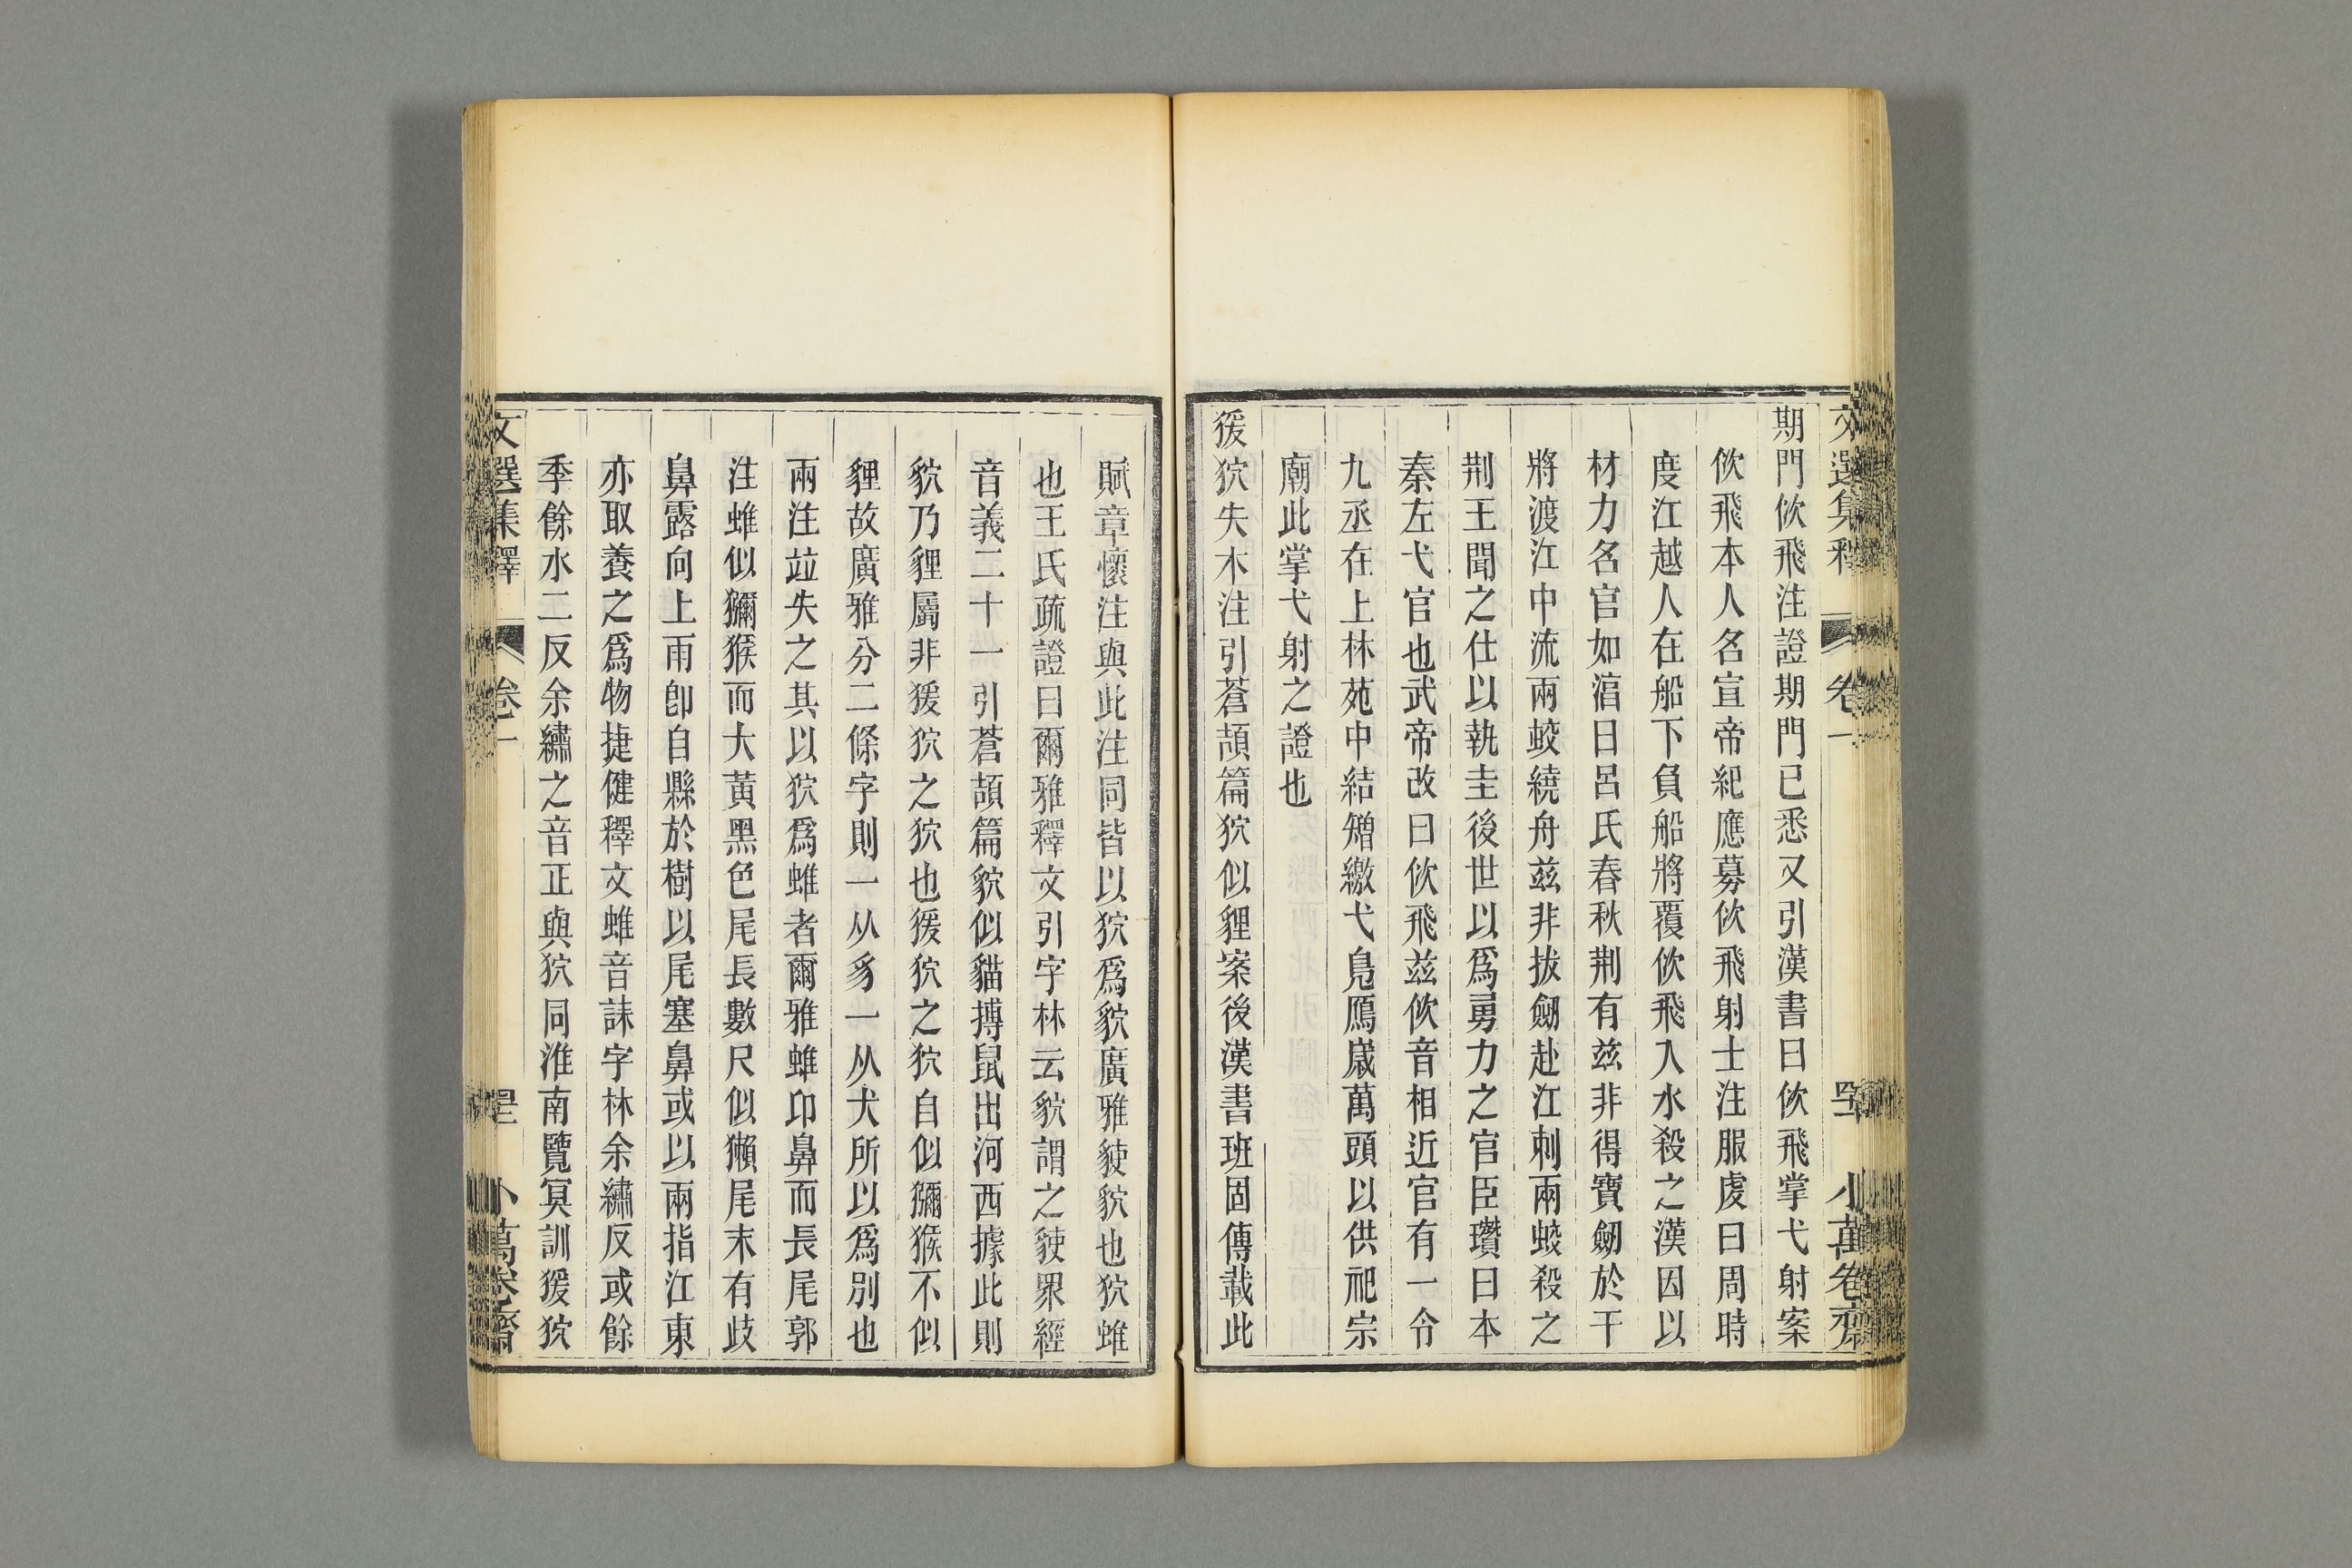 期門佽飛注證期門已悉又引漢書曰佽飛掌弋射案
佽飛本人名宣帝紀應募佽飛射士注服虔曰周時
度江越人在船下負船將覆佽飛入水殺之漢因以
材力名官如湻曰呂氏春秋荆有兹非得寶劒於干
將渡江中流兩蛟繞舟兹非拔劒赴江刺兩蛟殺之
荆王聞之仕以執圭後世以爲勇力之官臣瓚曰本
秦左弋官也武帝改曰佽飛兹佽音相近官有一令
九丞在上林苑中結矰繳弋鳧鴈嵗萬頭以供祀宗
廟此掌弋射之證也
猨狖失木注引蒼頡篇狖似貍案後漢書班固傳載此
賦章懷注與此注同皆以狖爲貁廣雅貄貁也狖蜼
也王氏疏證曰爾雅釋文引字林云貁謂之貄眾經
音義二十一引蒼頡篇貁似貓搏鼠出河西據此則
貁乃貍屬非猨狖之狖也猨狖之狖自似獼猴不似
貍故廣雅分二條字則一从豸一从犬所以爲別也
兩注竝失之其以狖爲蜼者爾雅蜼卬鼻而長尾郭
注蜼似獼猴而大黃黑色尾長數尺似獺尾末有歧
鼻露向上雨卽自縣於樹以尾塞鼻或以兩指江東
亦取養之爲物捷健釋文蜼音誄字林余繡反或餘
季餘水二反余繡之音正與狖同淮南覽冥訓猨狖
文選集釋
卷一
小萬卷齋
文選集釋
卷一
小萬卷齋